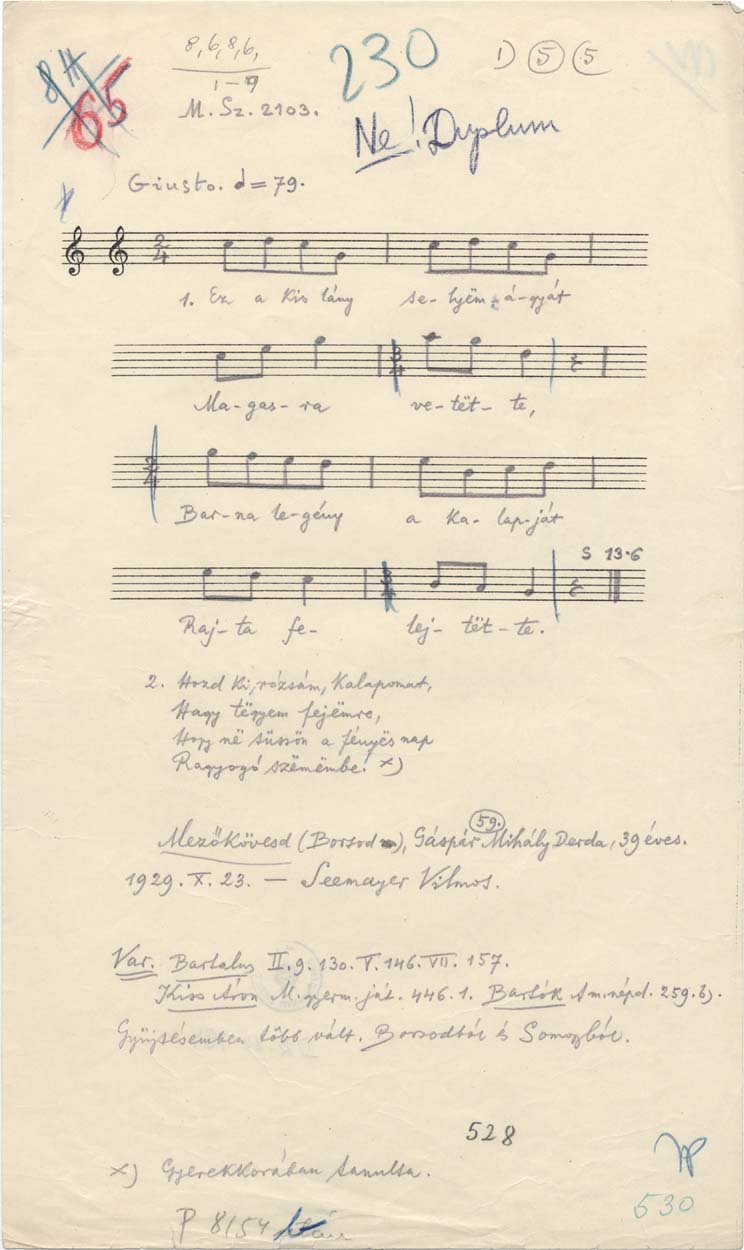 8,6,8,6,
1-9
M. Sz. 2103.
230
D 5 5
65
Ne! Duplum
Giusto. d = 79.
2/4
1. Ez a kis lány se-lyëm á-gyát
3/4
Ma-gas-ra ve-tët-te,
2/4
Bar-na le-gény a ka-lap-ját
S 13·6
Raj-ta fe- lej-tët-te.
2. Hozd ki, rózsám, kalapomat,
Hagy tëgyem fejëmre,
Hogy në süssön a fényës nap
Ragyogó szëmëmbe! x)
59.
Mezőkövesd (Borsod), Gáspár Mihály Derda, 39 éves.
1929. X. 23. — Seemayer Vilmos.
Var. Bartalus II. 9. 130. V. 146. VII. 157.
Kiss Áron M. gyerm. ját. 446. 1. Bartók A m. népd. 259. b).
Gyűjtésemben több vált. Borsodból és Somogyból.
528
x) Gyerekkorában tanulta.
530
P 8154